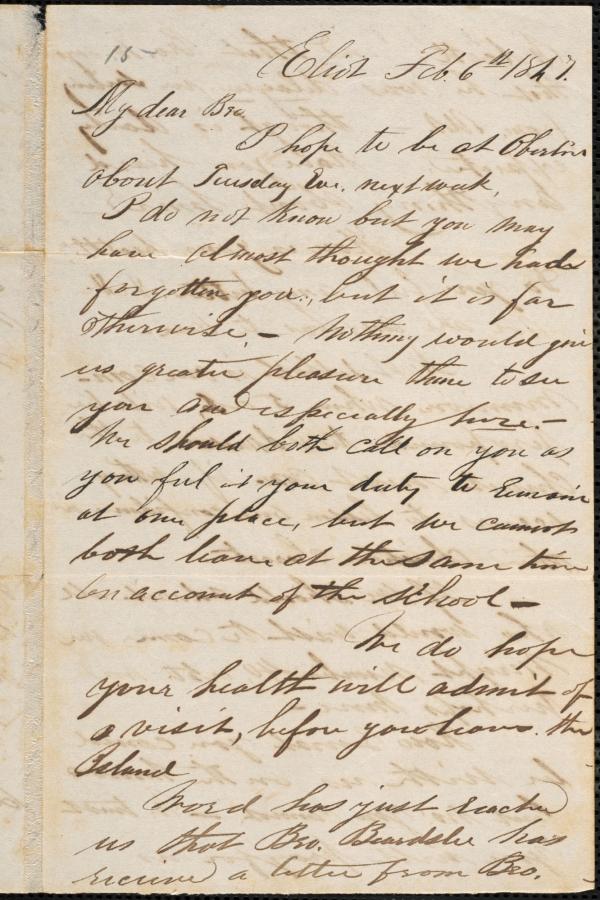 15-
Eliot Feb. 6th 1847.
My dear Bro.
I hope to be at Oberlin
about Tuesday Eve. next week.
I do not know but you may
have almost thought we had
forgotten you, but it is far
otherwise. - Nothing would give
us greater pleasure than to see
you and especially here. -
We should both call on you as
you feel it your duty to remain
at one place, but we cannot
both leave at the same time
on account of the school -
We do hope
your health will admit of
a visit, before you leave. the
Island
Word has just reached
us that Bro. Beardslee has
receive a letter from Bro.